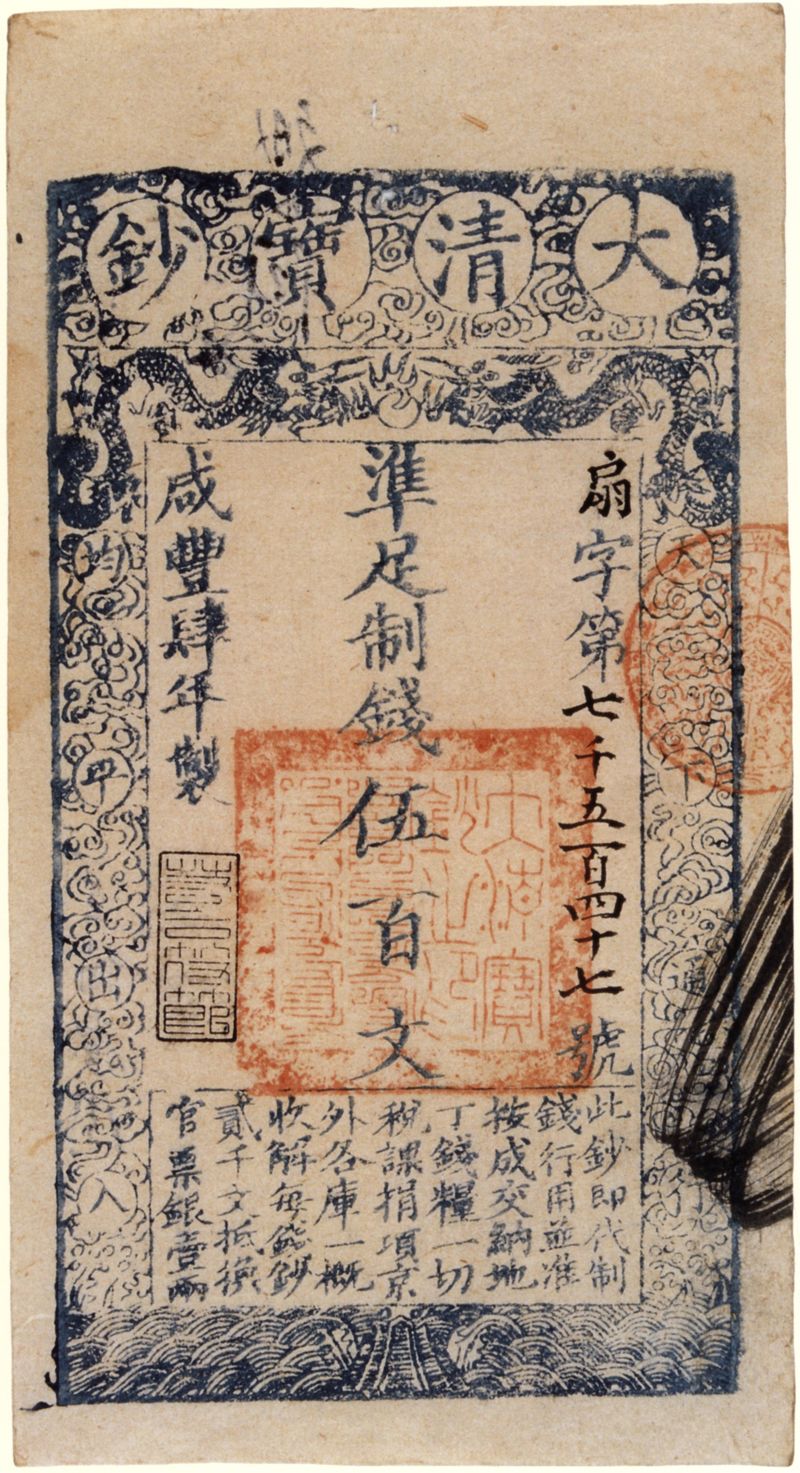 大清寶鈔
天下通行
扇字第七千五百四十七號
準足制錢伍百文
咸豐肆年製
均平出入
此鈔即代制
錢行用並准
按成交納地
丁錢糧一切
稅課捐項京
外各庫一概
收解每錢鈔
貳千文抵換
官票銀壹兩